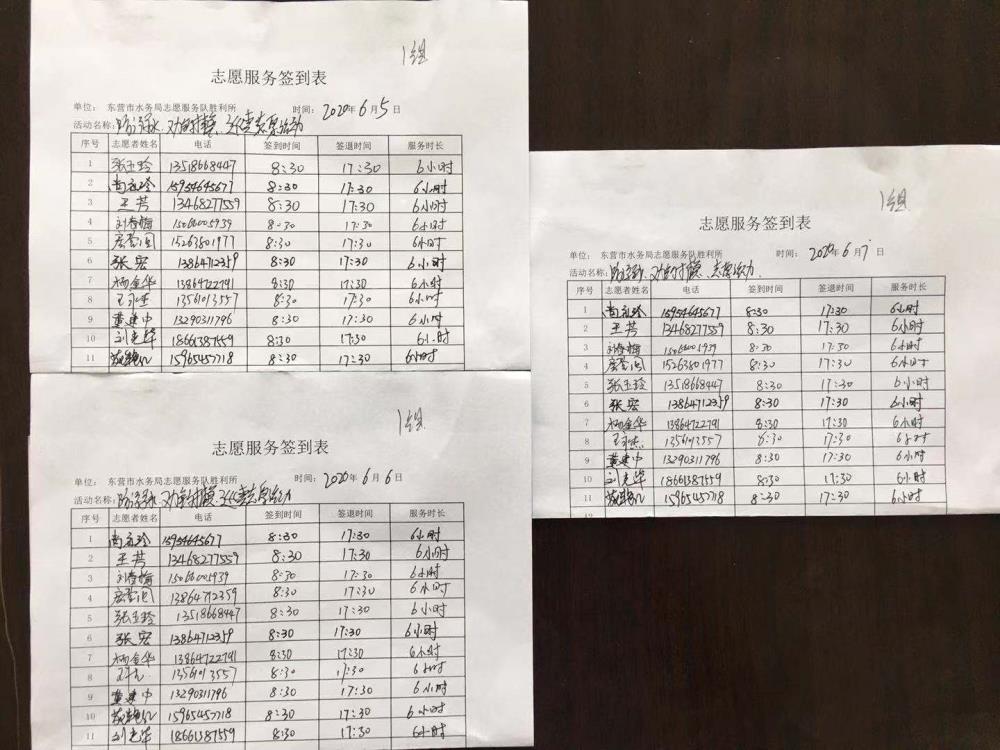 1组
志愿服务签到表
单位： 东营市水务局志愿服务队胜利所 时间：2020年6月5日
活动名称：防溺水、对
序号 志愿者姓名 电话 签到时间 签退时间 服务时长
1 张玉玲 13518668447 8:30 17:30 6小时
2 尚玲 15954645677 8:30 17:30 6小时
3 王芳 13468277559 8:30 17:30 6小时
4 刘春梅 15066005939 8:30 17:30 6小时
5 15263801977 8:30 17:30 6小时
6 张宏 13864712359 8:30 17:30 6小时
7 杨金华 13864722791 8:30 17:30 6小时
8 王 13561013557 8:30 17:30 6小时
9 董建中 13290311796 8:30 17:30 6小时
10 刘光华 18661387559 8:30 17:30 6小时
11 15965457718 8:30 17:30 6小时
1组
志愿服务签到表
单位： 东营市水务局志愿服务队胜利所 时间：2020年6月6日
活动名称：防溺水 对
序号 志愿者姓名 电话 签到时间 签退时间 服务时长
1 尚玲 15954645677 8:30 17:30 6小时
2 王芳 13468277559 8:30 17:30 6小时
3 刘春梅 15066005939 8:30 17:30 6小时
4 13864712359 8:30 17:30 6小时
5 张玉玲 13518668447 8:30 17:30 6小时
6 张宏 13864712359 8:30 17:30 6小时
7 杨金华 13864722791 8:30 17:30 6小时
8 13561013557 8:30 17:30 6小时
9 董建中 13290311796 8:30 17:30 6小时
10 15965457718 8:30 17:30 6小时
11 刘光华 18661387559 8:30 17:30 6小时
1组
志愿服务签到表
单位： 东营市水务局志愿服务队胜利所 时间：2020年6月7日
活动名称：防溺水、对
序号 志愿者姓名 电话 签到时间 签退时间 服务时长
1 尚玲 15954645677 8:30 17:30 6小时
2 王芳 13468277559 8:30 17:30 6小时
3 刘春梅 8:30 17:30 6小时
4 15263801977 8:30 17:30 6小时
5 张玉玲 13518668447 8:30 17:30 6小时
6 张宏 13864712359 8:30 17:30 6小时
7 杨金华 13864722791 8:30 17:30 6小时
8 王 13561013557 8:30 17:30 6小时
9 董建中 13290311796 8:30 17:30 6小时
10 刘光华 18661387559 8:30 17:30 6小时
11 15965457718 8:30 17:30 6小时